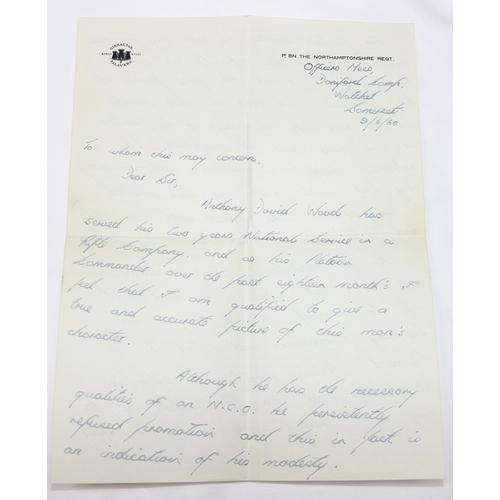 GIBRALTAR
TALAVERA
1st BN. THE NORTHAMPTONSHIRE REGT.
Officers Mess,
Doniford Camp.
Watchet
Somerset
9/6/60
To whom this may concern.
Dear Sir,
Anthony David Wood has
served his two years Nationals Service in a
Rifle Company, and as his Platoon
Commander over the past eighteen month's I
feel that I am qualified to give a
true and accurate picture of this man's
character.
Although he has the necessary
qualities of an N.C.O. he persistently
refused promotion and this in fact is
an indication of his modesty.